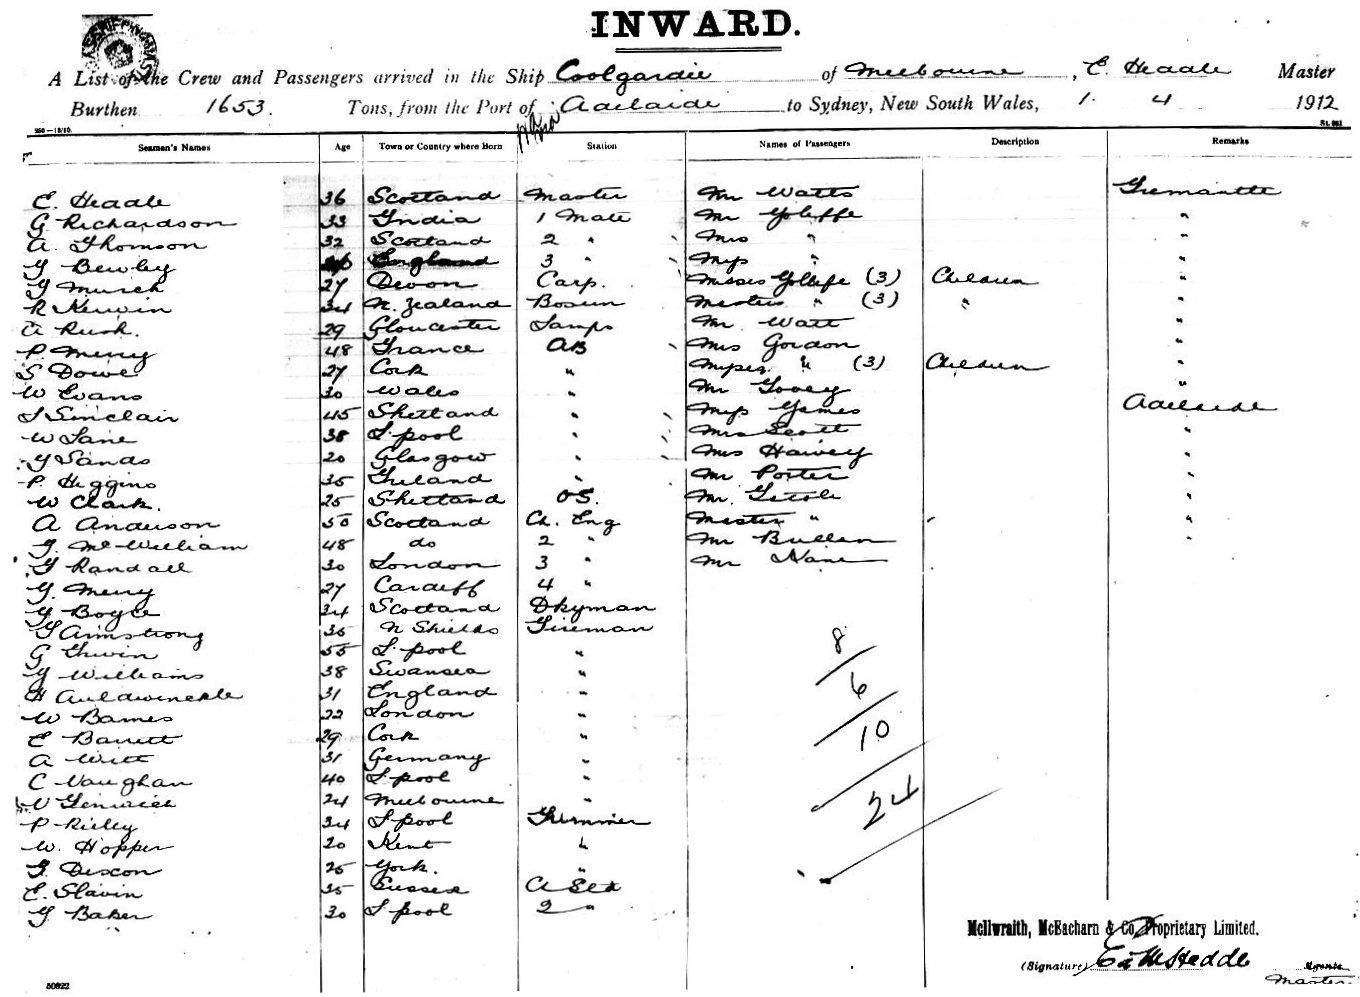 INWARD.
A List of the Crew and Passengers arrived in the Ship Coolgardie of Melbourne, E. Headle Master
Burthen 1653. Tons, from the Port of Adelaide to Sydney, New South Wales, 1. 4 1912
250—12/10. St. 961
Seamen's Names Age Town or Country where Born Station Names of Passengers Description Remarks
E. Headle 36 Scotland Master Mr Watts Fremantle
G Richardson 33 India 1 Mate Mr Joliffe "
A. Thomson 32 Scotland 2 " Mrs " "
J Bewley 26 England 3 " Miss " "
J Murch 27 Devon Carp. Misses Jolliffe (3) Children "
R Kerwin 34 N. Zealand Bosun Masters " (3) " "
A Rusk. 29 Gloucester Lamps Mr. Watt "
P Merry 48 France AB Mrs Gordon "
S Dowe 27 Cork " Misses " (3) Children "
W Evans 30 Wales " Mr Tovey "
J Sinclair 45 Shetland " Miss James Adelaide
W Lane 38 L.pool " Mrs Scott "
J Sands 20 Glasgow " Mrs Harvey "
P. Higgins 35 Ireland " Mr Porter "
W Clark. 25 Shetland OS. Mr. "
A Anderson 50 Scotland Ch. Eng Master " "
J. McWilliam 48 do 2 " Mr Bullen "
J Randall 30 London 3 " Mr Hane
J. Merry 27 Cardiff 4 "
J Boyce 34 Scotland Dkyman
J Armstrong 35 N Shields Fireman
G 55 L.pool "
J Williams 38 Swansea "
H Auldwinckle 31 England "
W Barnes 22 London "
E Barrett 29 Cork "
A Witt 31 Germany "
C Vaughan 40 L.pool "
V Fenwick 24 Melbourne "
P Rieley 34 L.pool Trimmer
W. Hopper 20 Kent "
J. Dixon 25 York. "
E. Slavin 35 Sussex C Std
J Baker 30 L.pool 2 "
8
6
10
24
McIlwraith, McEacharn & Co, Proprietary Limited.
(Signature) Headle Agents
Master
50822